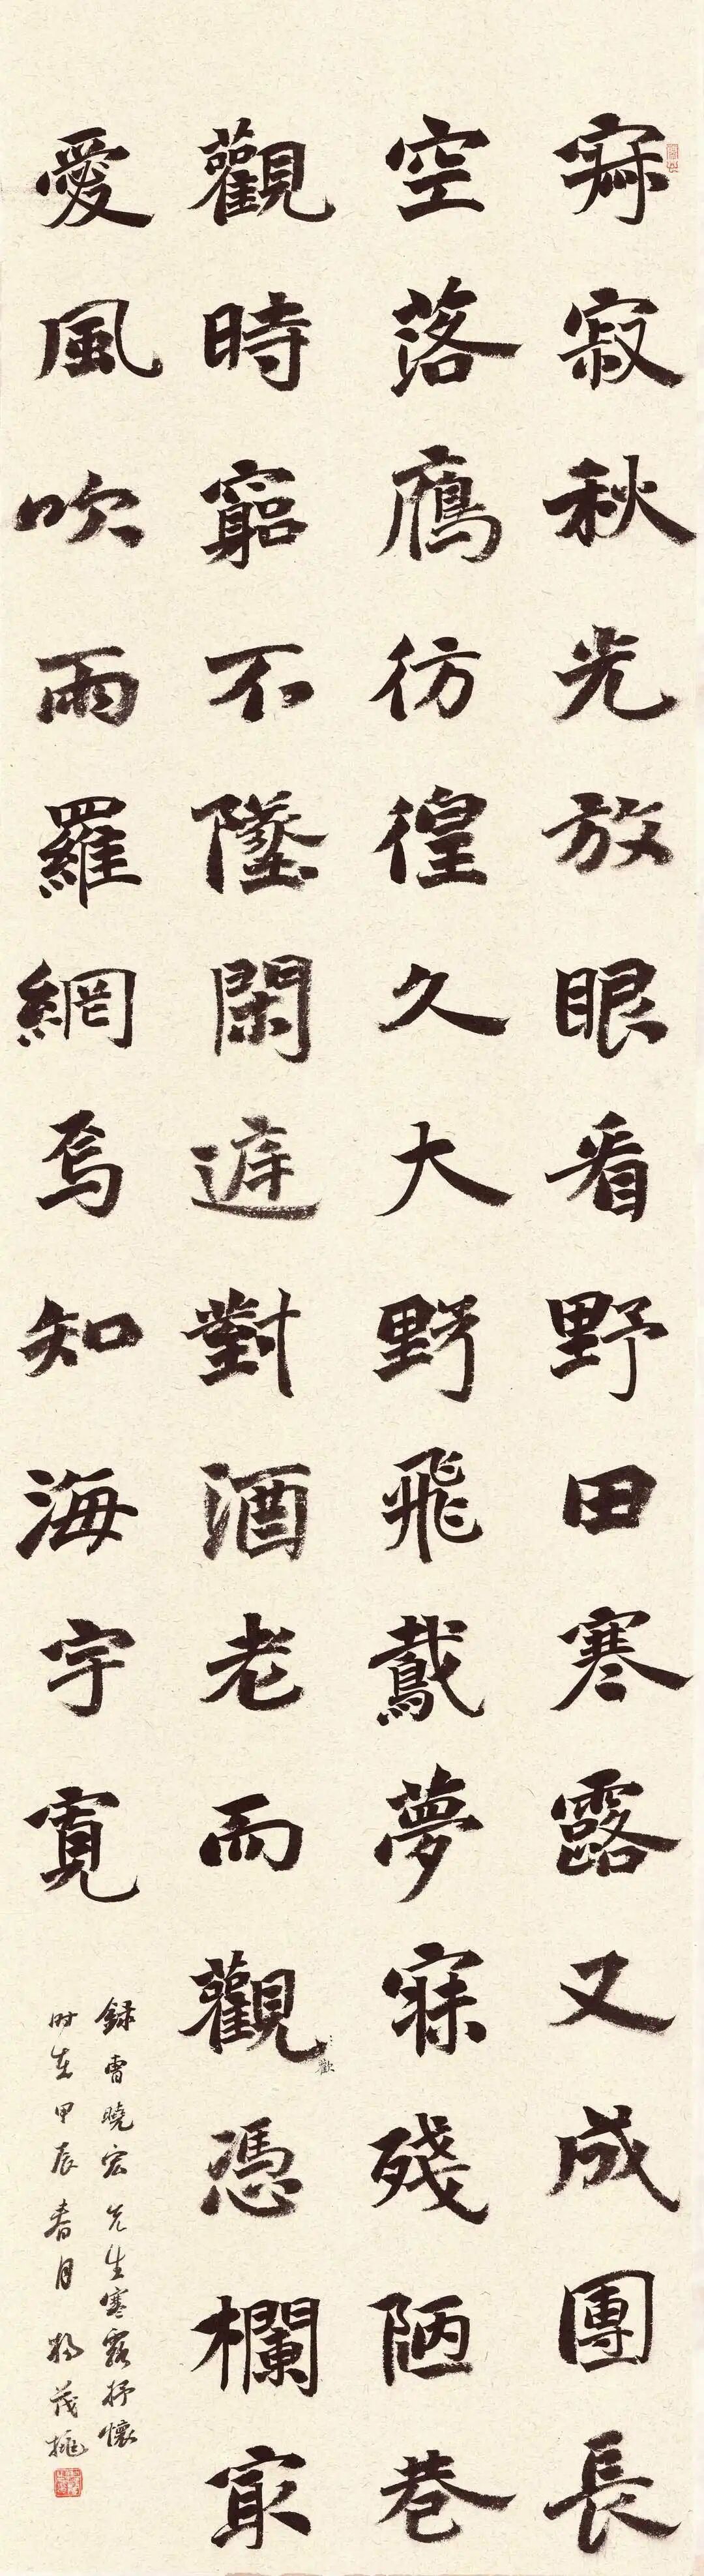 寂寂秋光放眼看野田寒露又成團長
空落鴈彷徨久大野飛鳶夢寐殘陋巷
觀時窮不墜閑庭對酒老而觀憑欄冣
愛風吹雨羅網焉知海宇寬
録曹曉宏先生寒露抒懷
时在甲辰春月楊茂